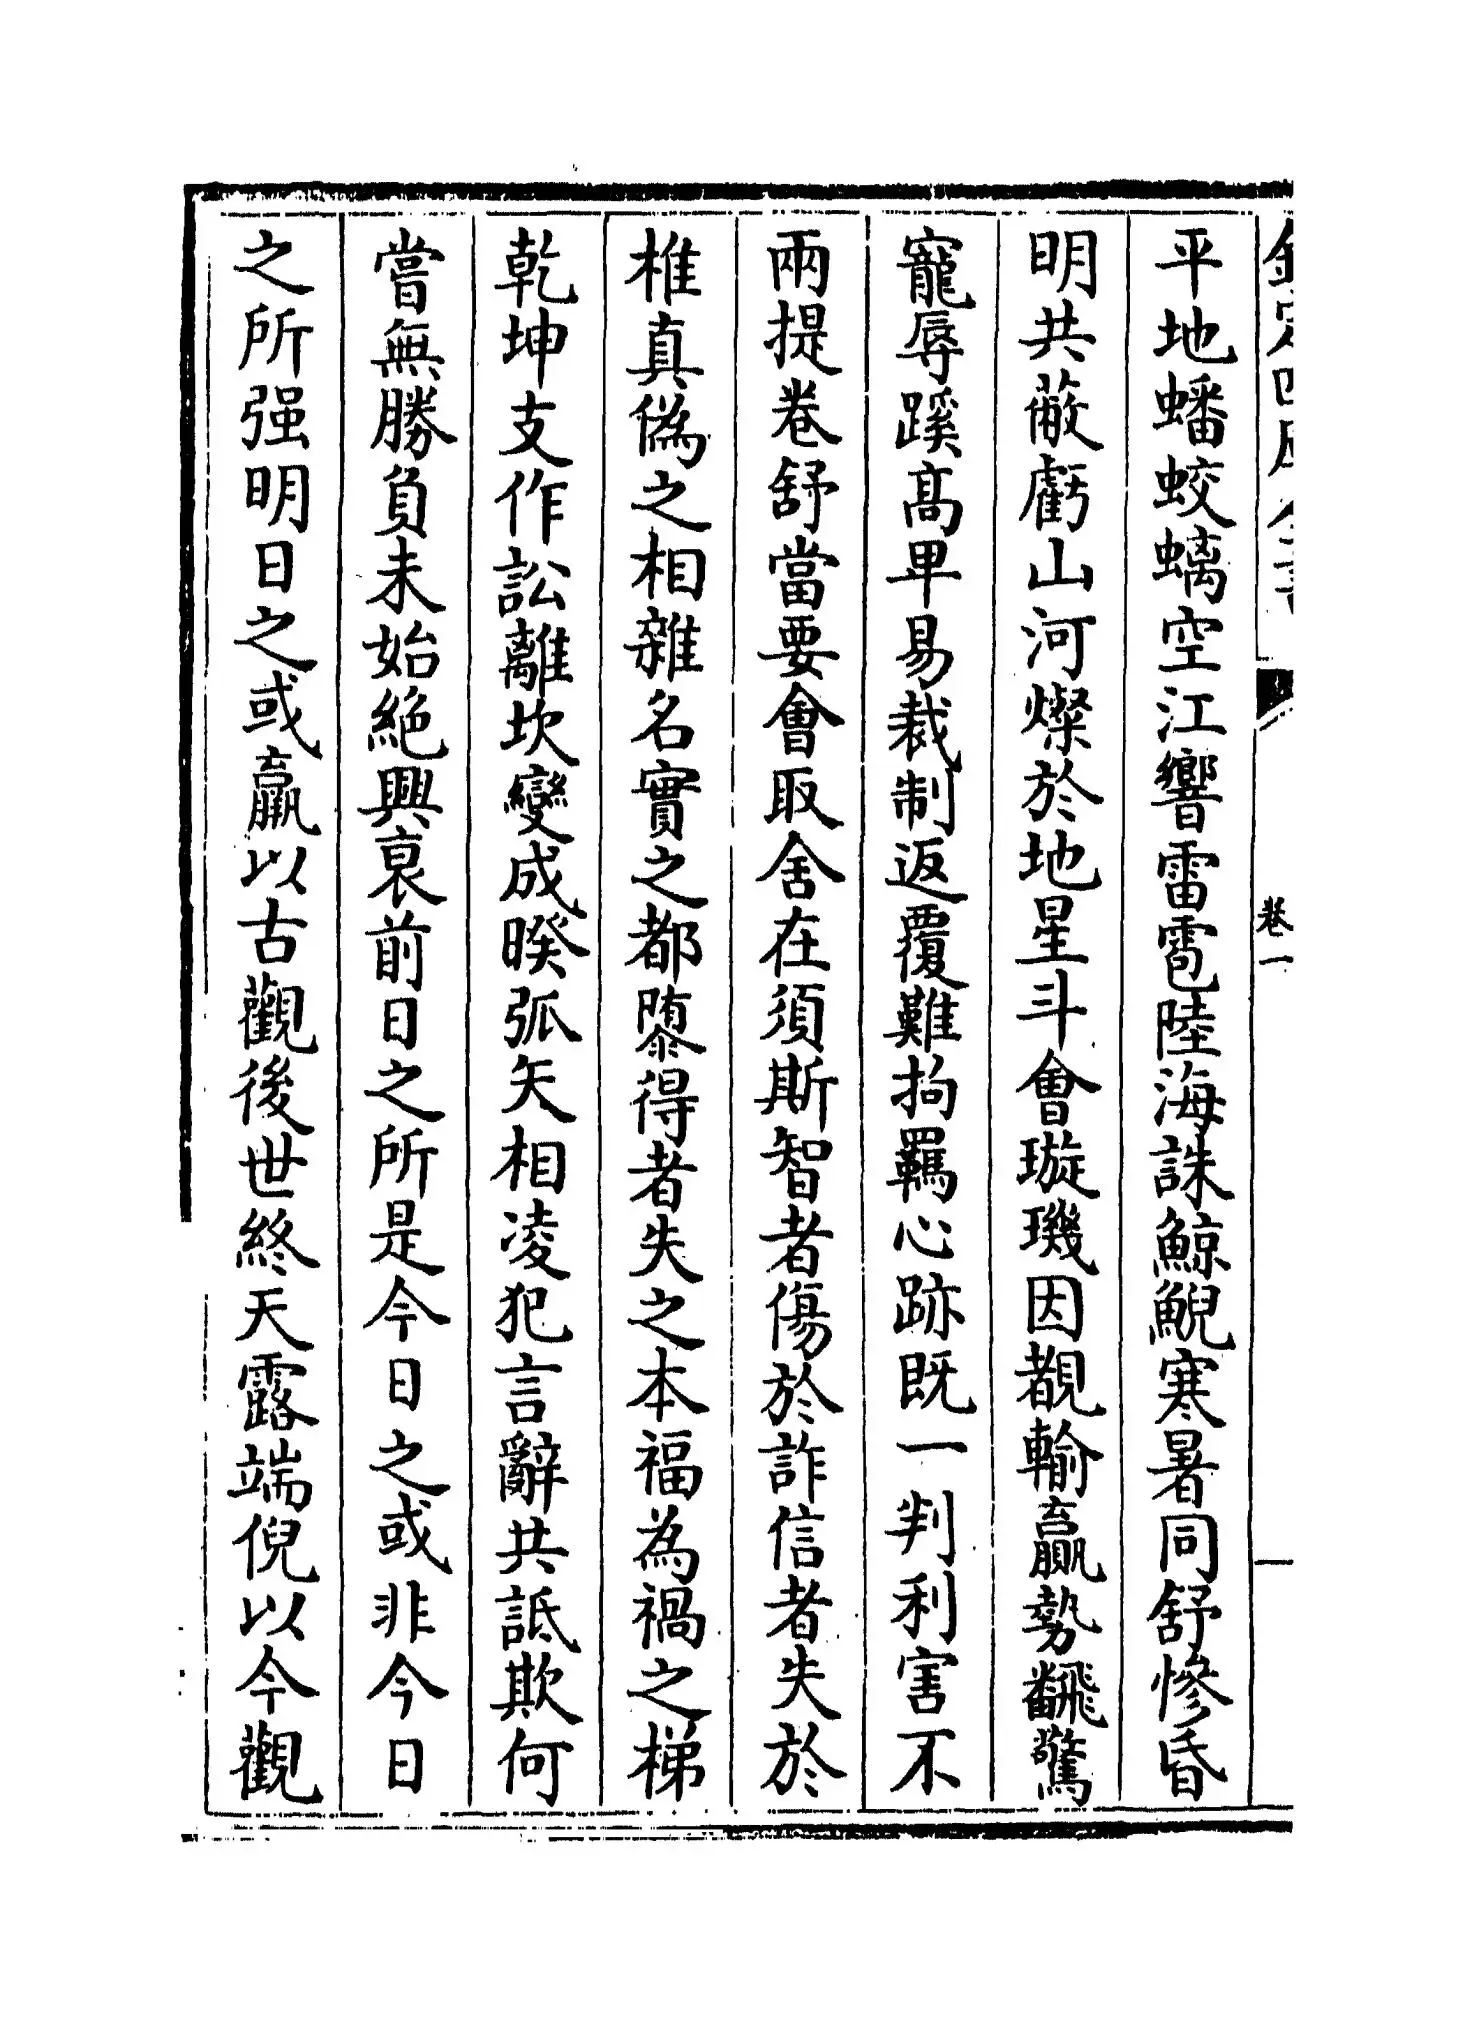 欽定四庫全書
卷一
平地蟠蛟螭空江響雷雹陸海誅鯨鯢寒暑同舒慘昏
明共蔽虧山河燦於地星斗會璇璣因覩輸贏勢翻驚
寵辱蹊髙卑易裁制返覆難拘羈心跡既一判利害不
兩提卷舒當要會取舍在須斯智者傷於詐信者失於
椎真偽之相雜名實之都隳得者失之本福為禍之梯
乾坤支作訟離坎變成暌弧矢相凌犯言辭共詆欺何
嘗無勝負未始絕興衰前日之所是今日之或非今日
之所强明日之或羸以古觀後世終天露端倪以今觀